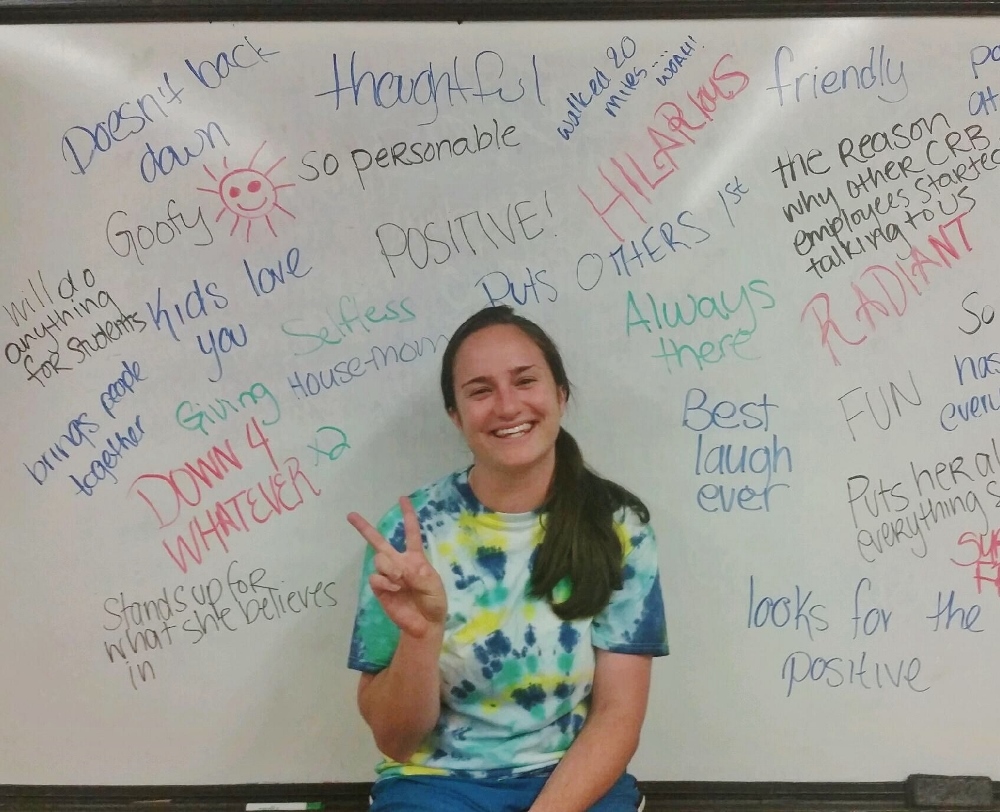 Doesn't back
down
thoughtful
walked 20
miles... WOAH!
HILARIOUS
friendly
so personable
Goofy
POSITIVE!
Puts OTHERS 1st
the reason
why other CRB
employees started
talking to us
RADIANT
will do
anything
for students
Kids love
you
Selfless
House-mom
Always
there
So
brings people
together
Giving
DOWN 4
WHATEVER x2
Best
laugh
ever
FUN
has
Puts her
everything
Stands up for
what she believes
in
looks for the
positive